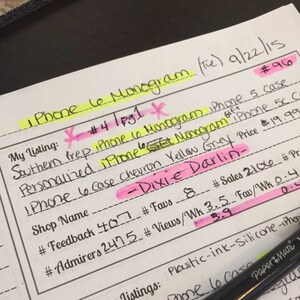 iPhone 6 Monogram (Tue) 9/22/15
#96
#4/pg1
My Listing: iPhone 6 Monogram iPhone 5 case
Southern Prep iPhone 6 Monogram Gift iPhone 5c
Personalized Price $19.99
iPhone 6 Case Chevron Yellow Grey
-Dixie Darlin-
Shop Name # Favs 8 # Sales 2106 #
# Feedback 407 # Views/Wk 3.5 Fav/Wk 0.4
# Admirers 2475 3.9 0.
plastic-ink-silicone-
Listings: iPhone 6 case
Paper Mate